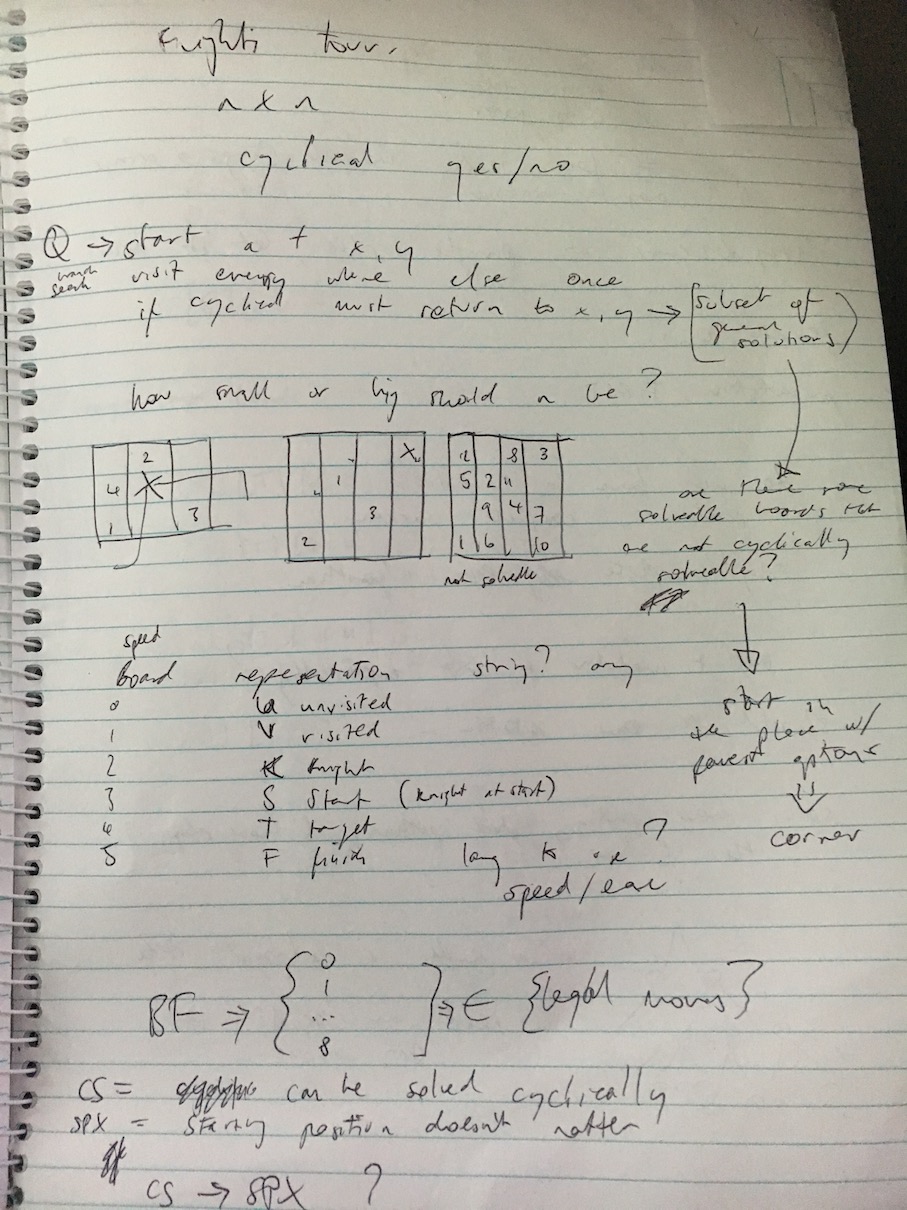 Knights tour.
n x n
cyclical yes/no
Q → start at x, y
search visit every where else once
if cyclical must return to x, y → [subset of
general
solutions]
how small or big should n be?
2
4 X
1 3
X
1
3
2
12 8 3
5 2 11
9 4 7
1 6 10
not solvable
are there some
solveable boards that
are not cyclically
solveable?
start in
the place w/
fewest options
corner
speed
Board representation string? array
0 U unvisited
1 V visited
2 K knight
3 S start (knight at start)
4 T target
5 F finish
lang to use?
speed/ease
BF ⇒ { 0
1
...
8 ] ⇒ ∈ {legal moves}
CS = can be solved cyclically
SPX = starting position doesn't matter
CS → SPX ?